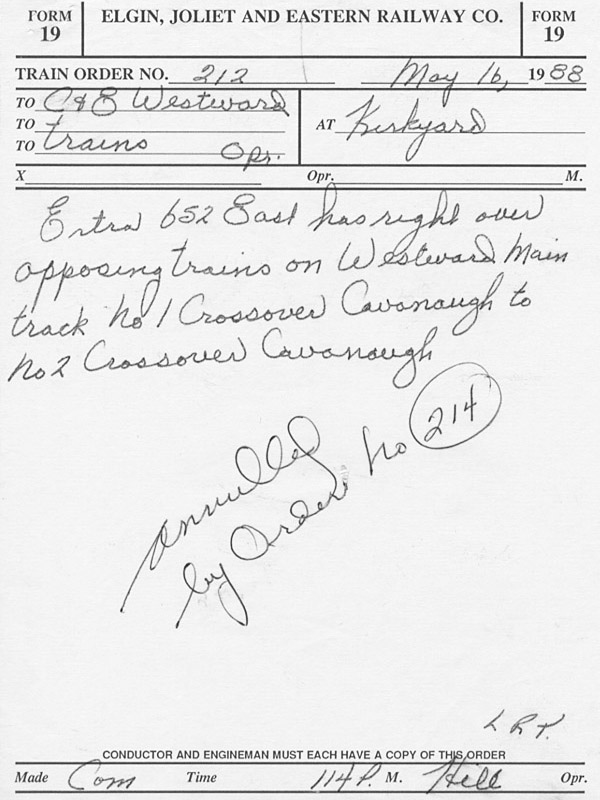 FORM 19 ELGIN, JOLIET AND EASTERN RAILWAY CO. FORM 19
TRAIN ORDER NO. 212 May 16, 1988
TO C&E Westward
TO trains
TO Opr.
AT Kirkyard
X Opr. M.
Extra 652 East has right over
opposing trains on Westward Main
track No 1 Crossover Cavanaugh to
No 2 Crossover Cavanaugh
annulled
by Order No 214
L R T.
CONDUCTOR AND ENGINEMAN MUST EACH HAVE A COPY OF THIS ORDER
Made Com Time 114 P. M. Hill Opr.